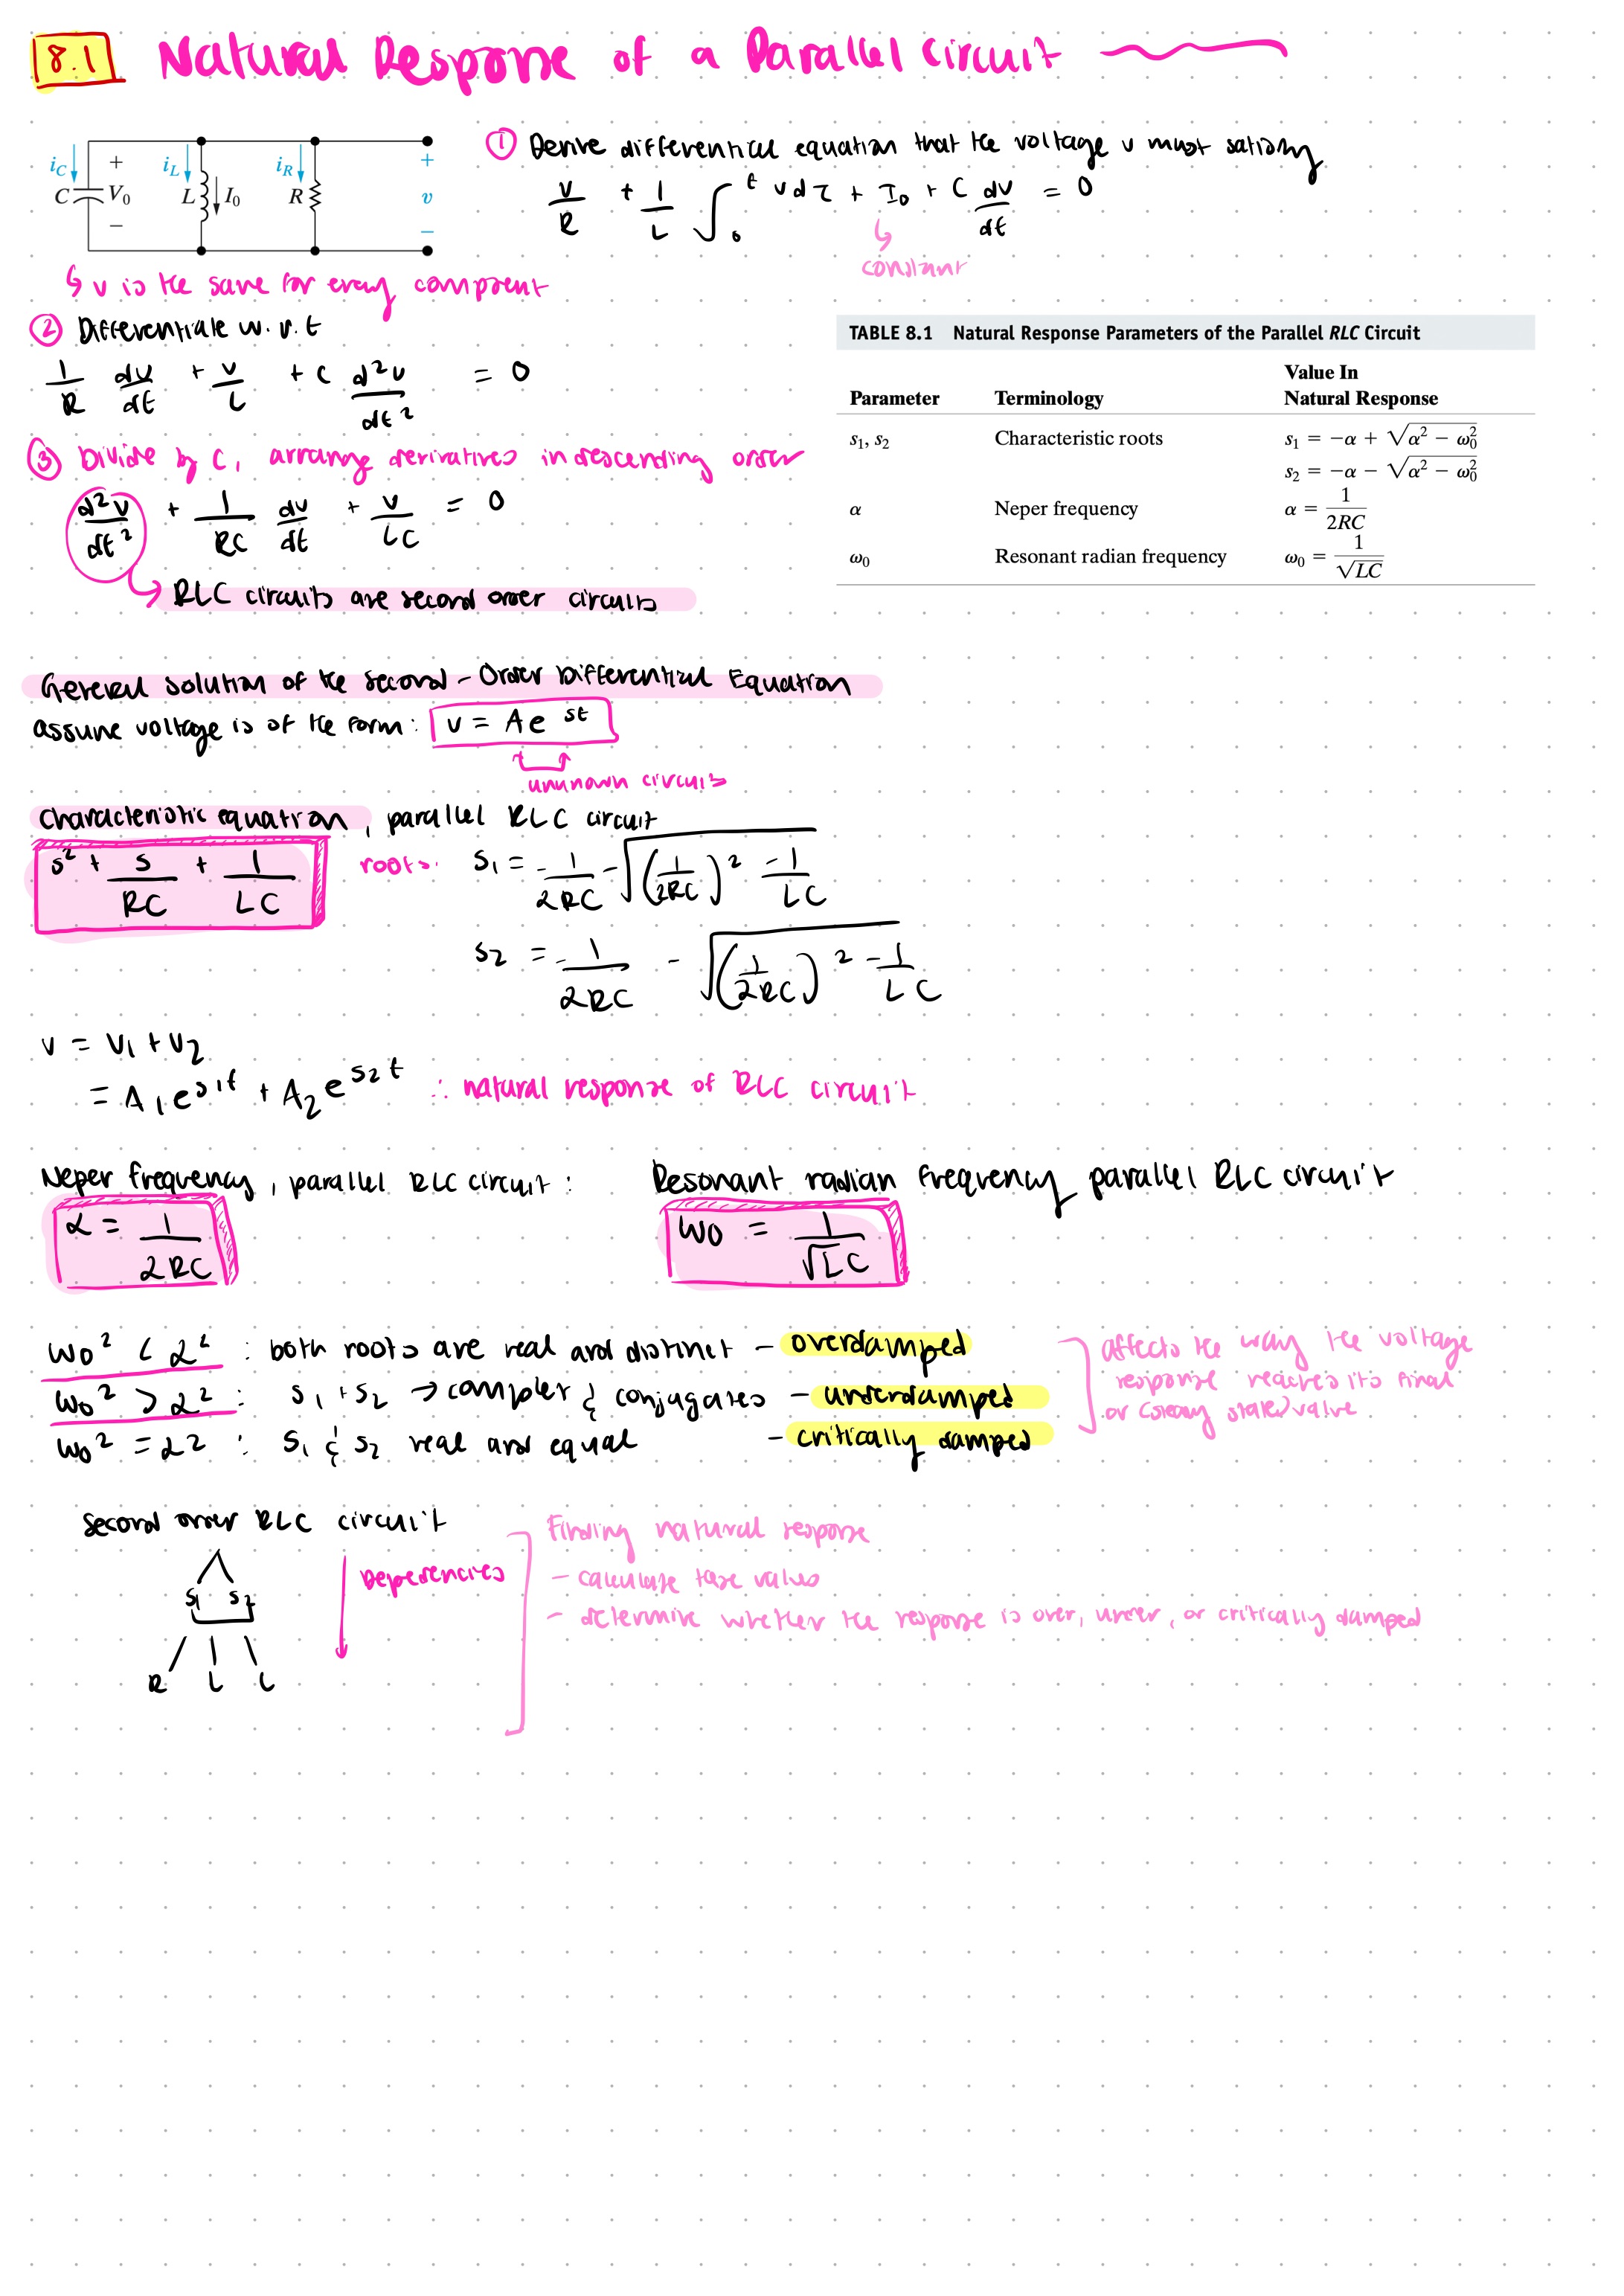 8.1 Natural Response of a Parallel Circuit
iC + iL iR +
C V₀ L I₀ R v
− −
↳ v is the same for every component
① Derive differential equation that the voltage v must satisfy
v/R + 1/L ∫₀ᵗ v dτ + I₀ + C dv/dt = 0
↳ constant
② Differentiate w.r.t
1/R dv/dt + v/L + C d²v/dt² = 0
③ Divide by C, arrange derivatives in descending order
d²v/dt² + 1/RC dv/dt + v/LC = 0
→ RLC circuits are second order circuits
TABLE 8.1 Natural Response Parameters of the Parallel RLC Circuit
Value In
Parameter Terminology Natural Response
s₁, s₂ Characteristic roots s₁ = −α + √(α² − ω₀²)
s₂ = −α − √(α² − ω₀²)
α Neper frequency α = 1/2RC
ω₀ Resonant radian frequency ω₀ = 1/√LC
General solution of the Second-Order Differential Equation
assume voltage is of the form: v = Ae^st
unknown circuits
Characteristic equation, parallel RLC circuit
s² + s/RC + 1/LC
roots: s₁ = -1/2RC - √((1/2RC)² - 1/LC)
s₂ = -1/2RC - √((1/2RC)² - 1/LC)
v = v₁ + v₂
= A₁e^s₁t + A₂e^s₂t ∴ natural response of RLC circuit
Neper frequency, parallel RLC circuit:
α = 1/2RC
Resonant radian frequency parallel RLC circuit
ω₀ = 1/√LC
ω₀² < α² : both roots are real and distinct - overdamped
ω₀² > α² : s₁ + s₂ → complex & conjugates - underdamped
ω₀² = α² : s₁ & s₂ real and equal - critically damped
affects the way the voltage
response reaches its final
or (steady state) value
Second order RLC circuit
s₁ s₂
R L C
Dependencies
Finding natural response
- calculate these values
- determine whether the response is over, under, or critically damped